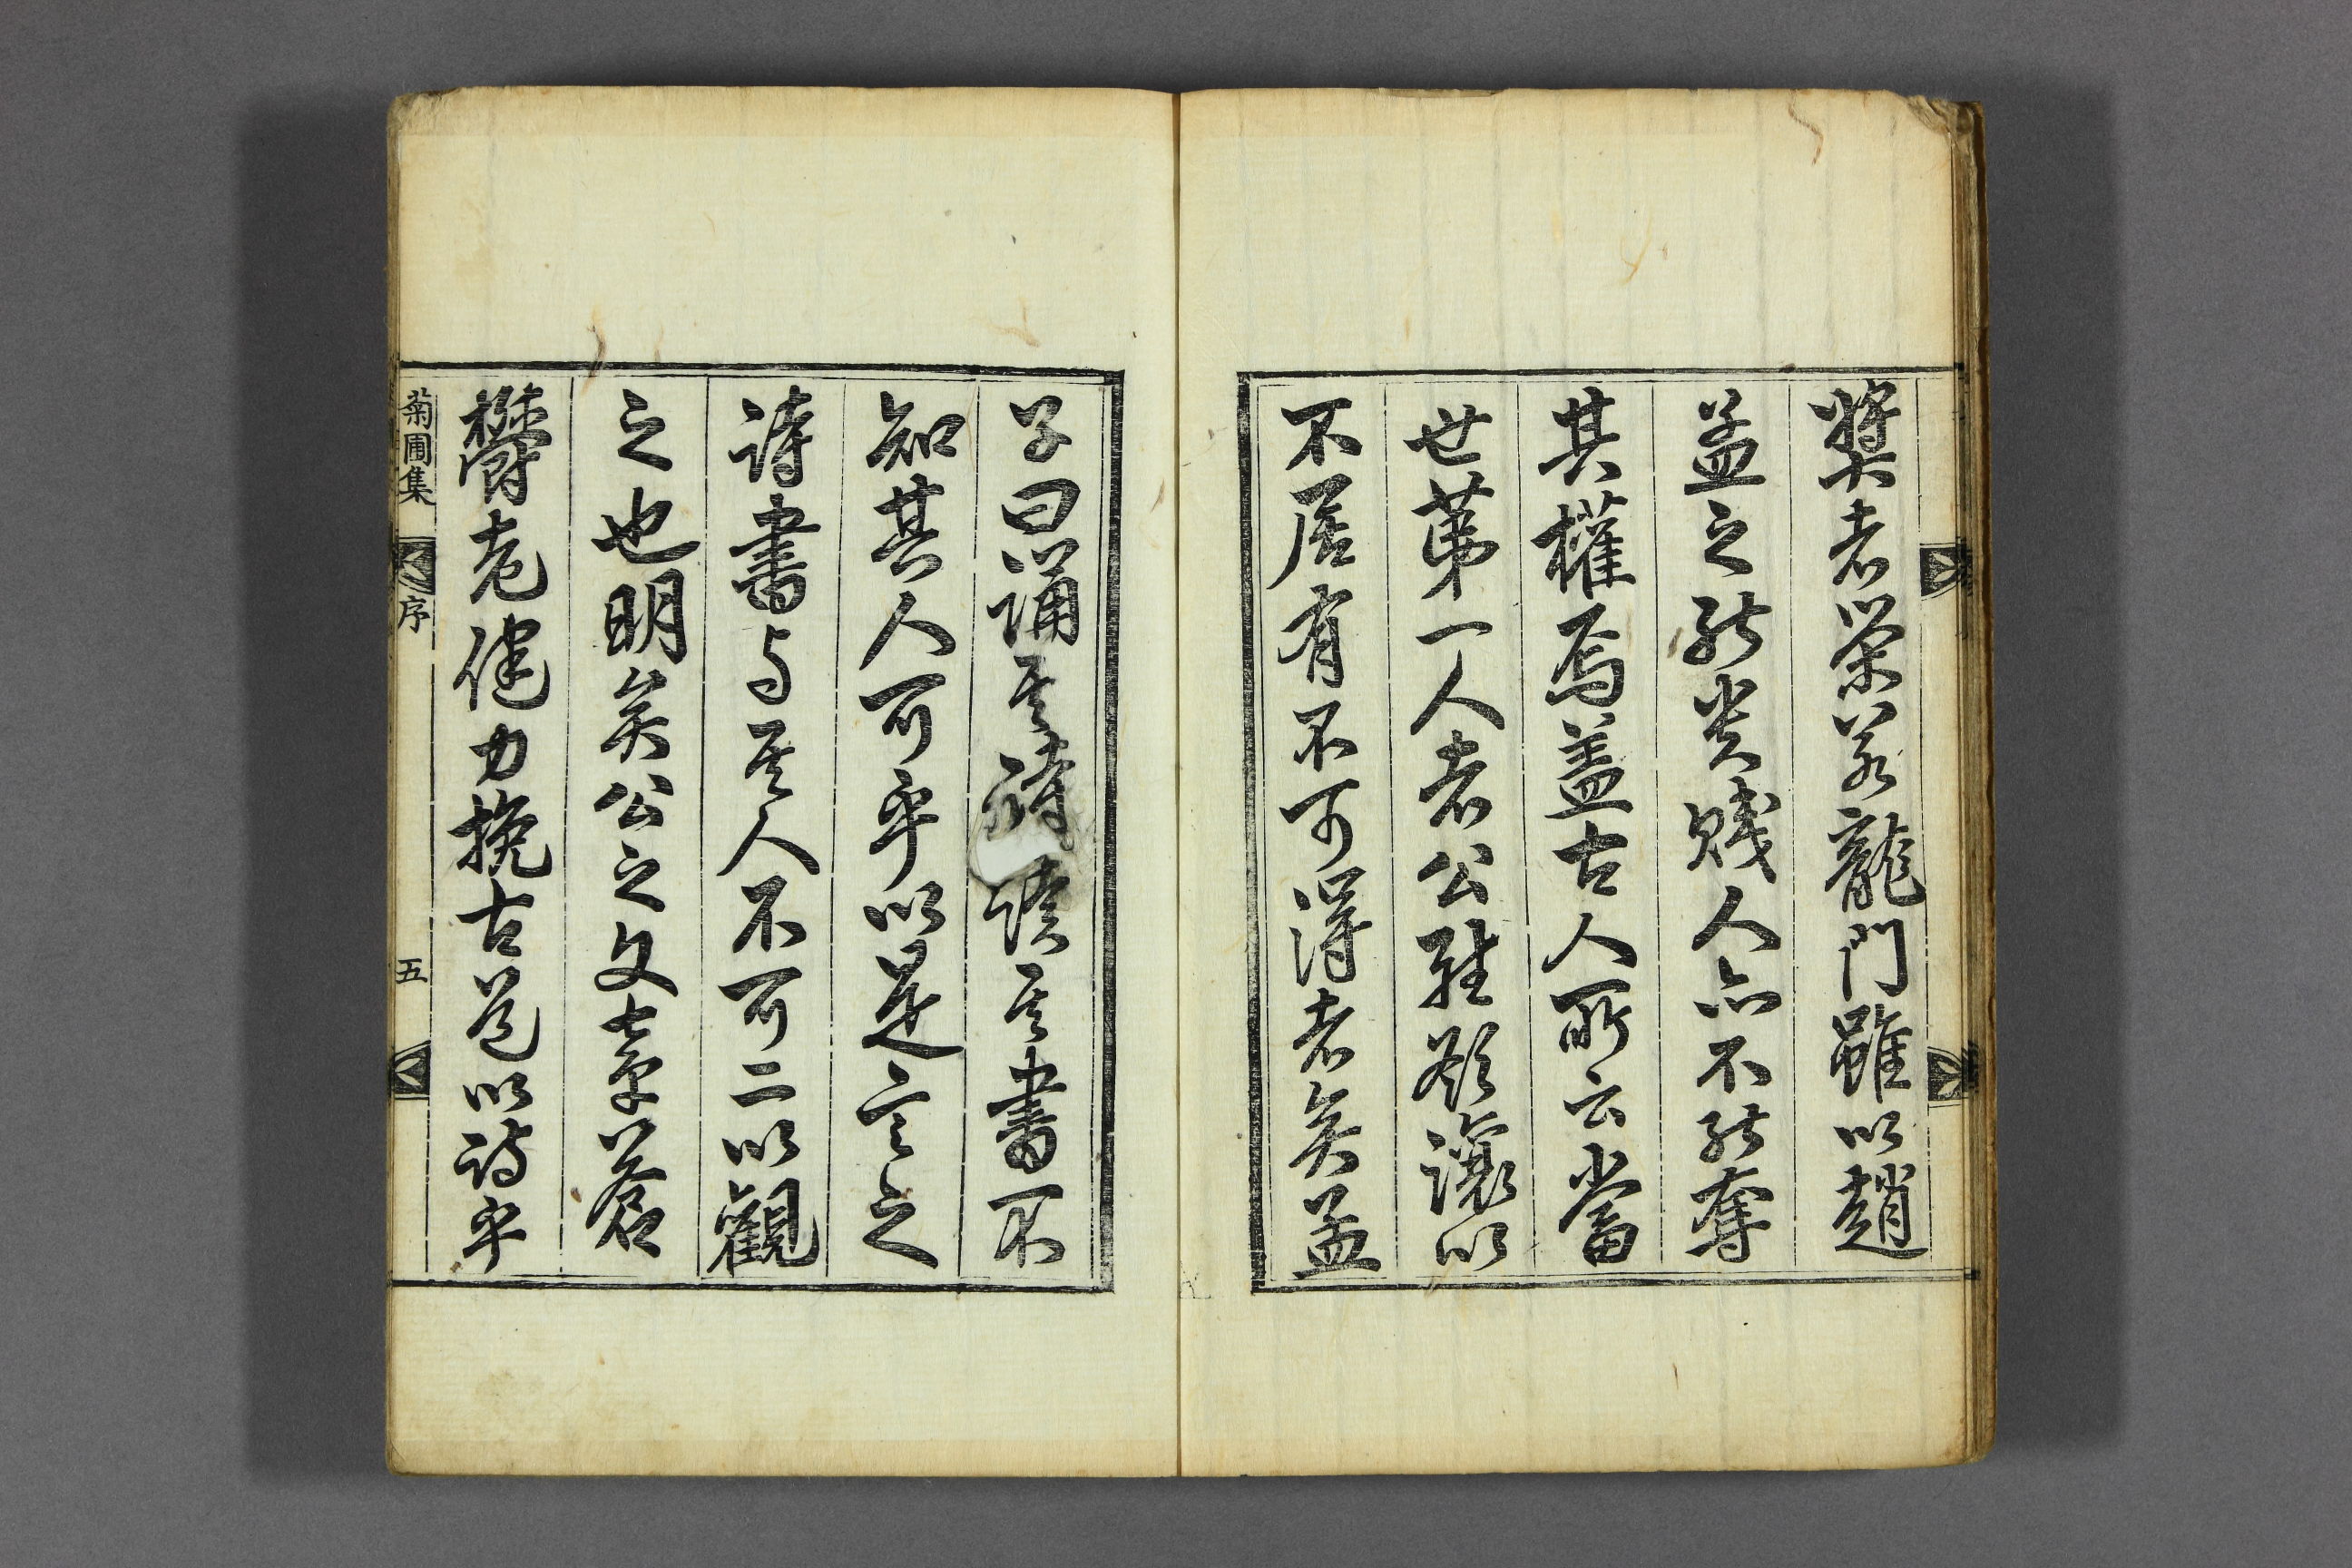 獎者榮若龍門雖以趙
孟之能貴賤人亦不能奪
其權焉盖古人所云當
世第一人者公雖欲讓以
不居有不可得者矣孟
子曰誦其詩讀其書不
知其人可乎以是言之
詩書与其人不可二以觀
之也明矣公之文章蒼
鬱老健力挽古色以詩乎
菊圃集 序 五